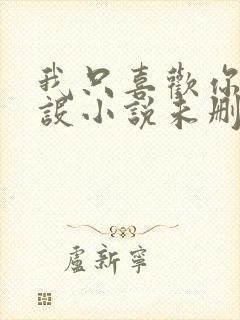 我只喜歡你
設小說未刪
盧新寧